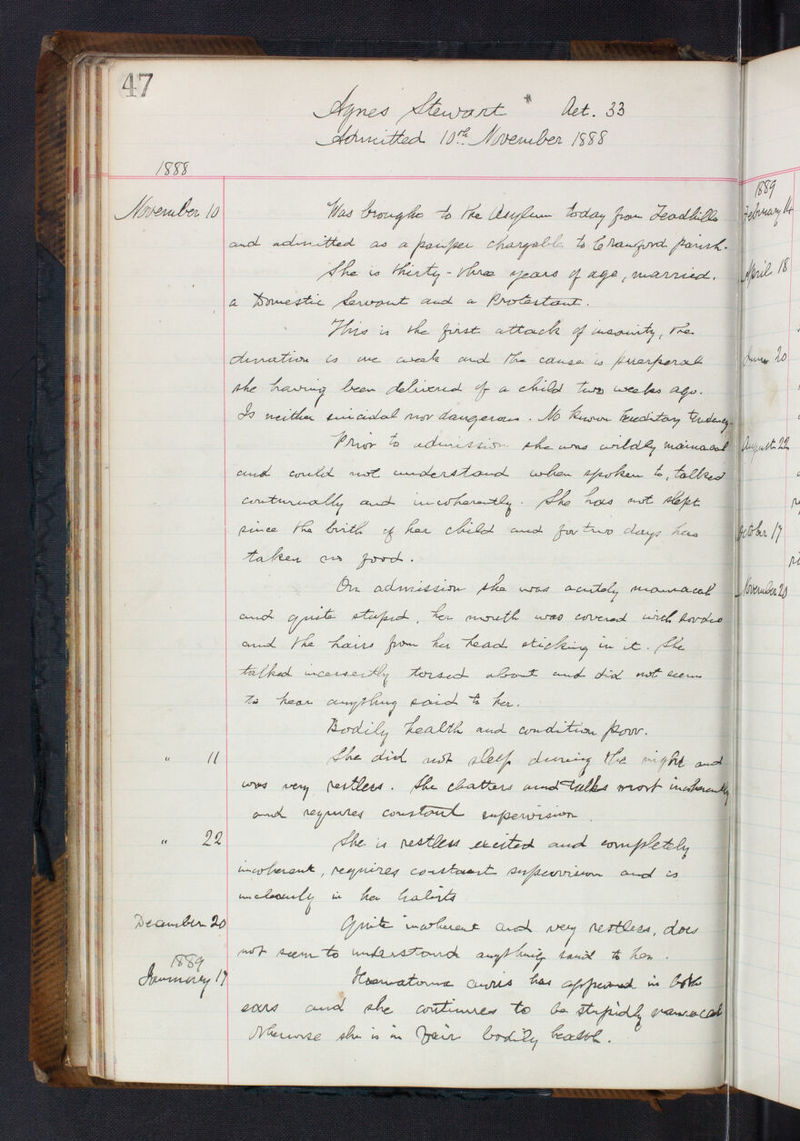 47
Agnes Stewart Aet. 33
Admitted 10th November 1888
1888
November 10 Was brought to the Asylum today from Leadhills
and admitted as a pauper chargeable to Crawford parish.
She is thirty-three years of age, married.
a Domestic Servant and a Protestant.
This is the first attack of insanity, the
duration is one week and the cause is puerperal
she having been delivered of a child two weeks ago.
Is neither suicidal nor dangerous. No known hereditary tendency.
Prior to admission she was wildly maniacal
and could not understand when spoken to, talked
continually and incoherently. She has not slept
since the birth of her child and for two days has
taken no food.
On admission she was acutely maniacal
and quite stupid, her mouth was covered with sordes
and the hairs from her head sticking in it. She
talked incessantly tossed about and did not seem
to hear anything said to her.
Bodily health and condition poor.
" 11 She did not sleep during the night and
was very restless. She chatters and talks most incoherently
and requires constant supervision.
" 22 She is restless excited and completely
incoherent, requires constant supervision and is
uncleanly in her habits
December 20 Quite incoherent and very restless, does
not seem to understand anything said to her.
1889
January 17 Haematoma auris has appeared in both
ears and she continues to be stupidly maniacal
Otherwise she is in fair bodily health.
1889
February 14
April 18
June 20
August 22
October 17
November 20